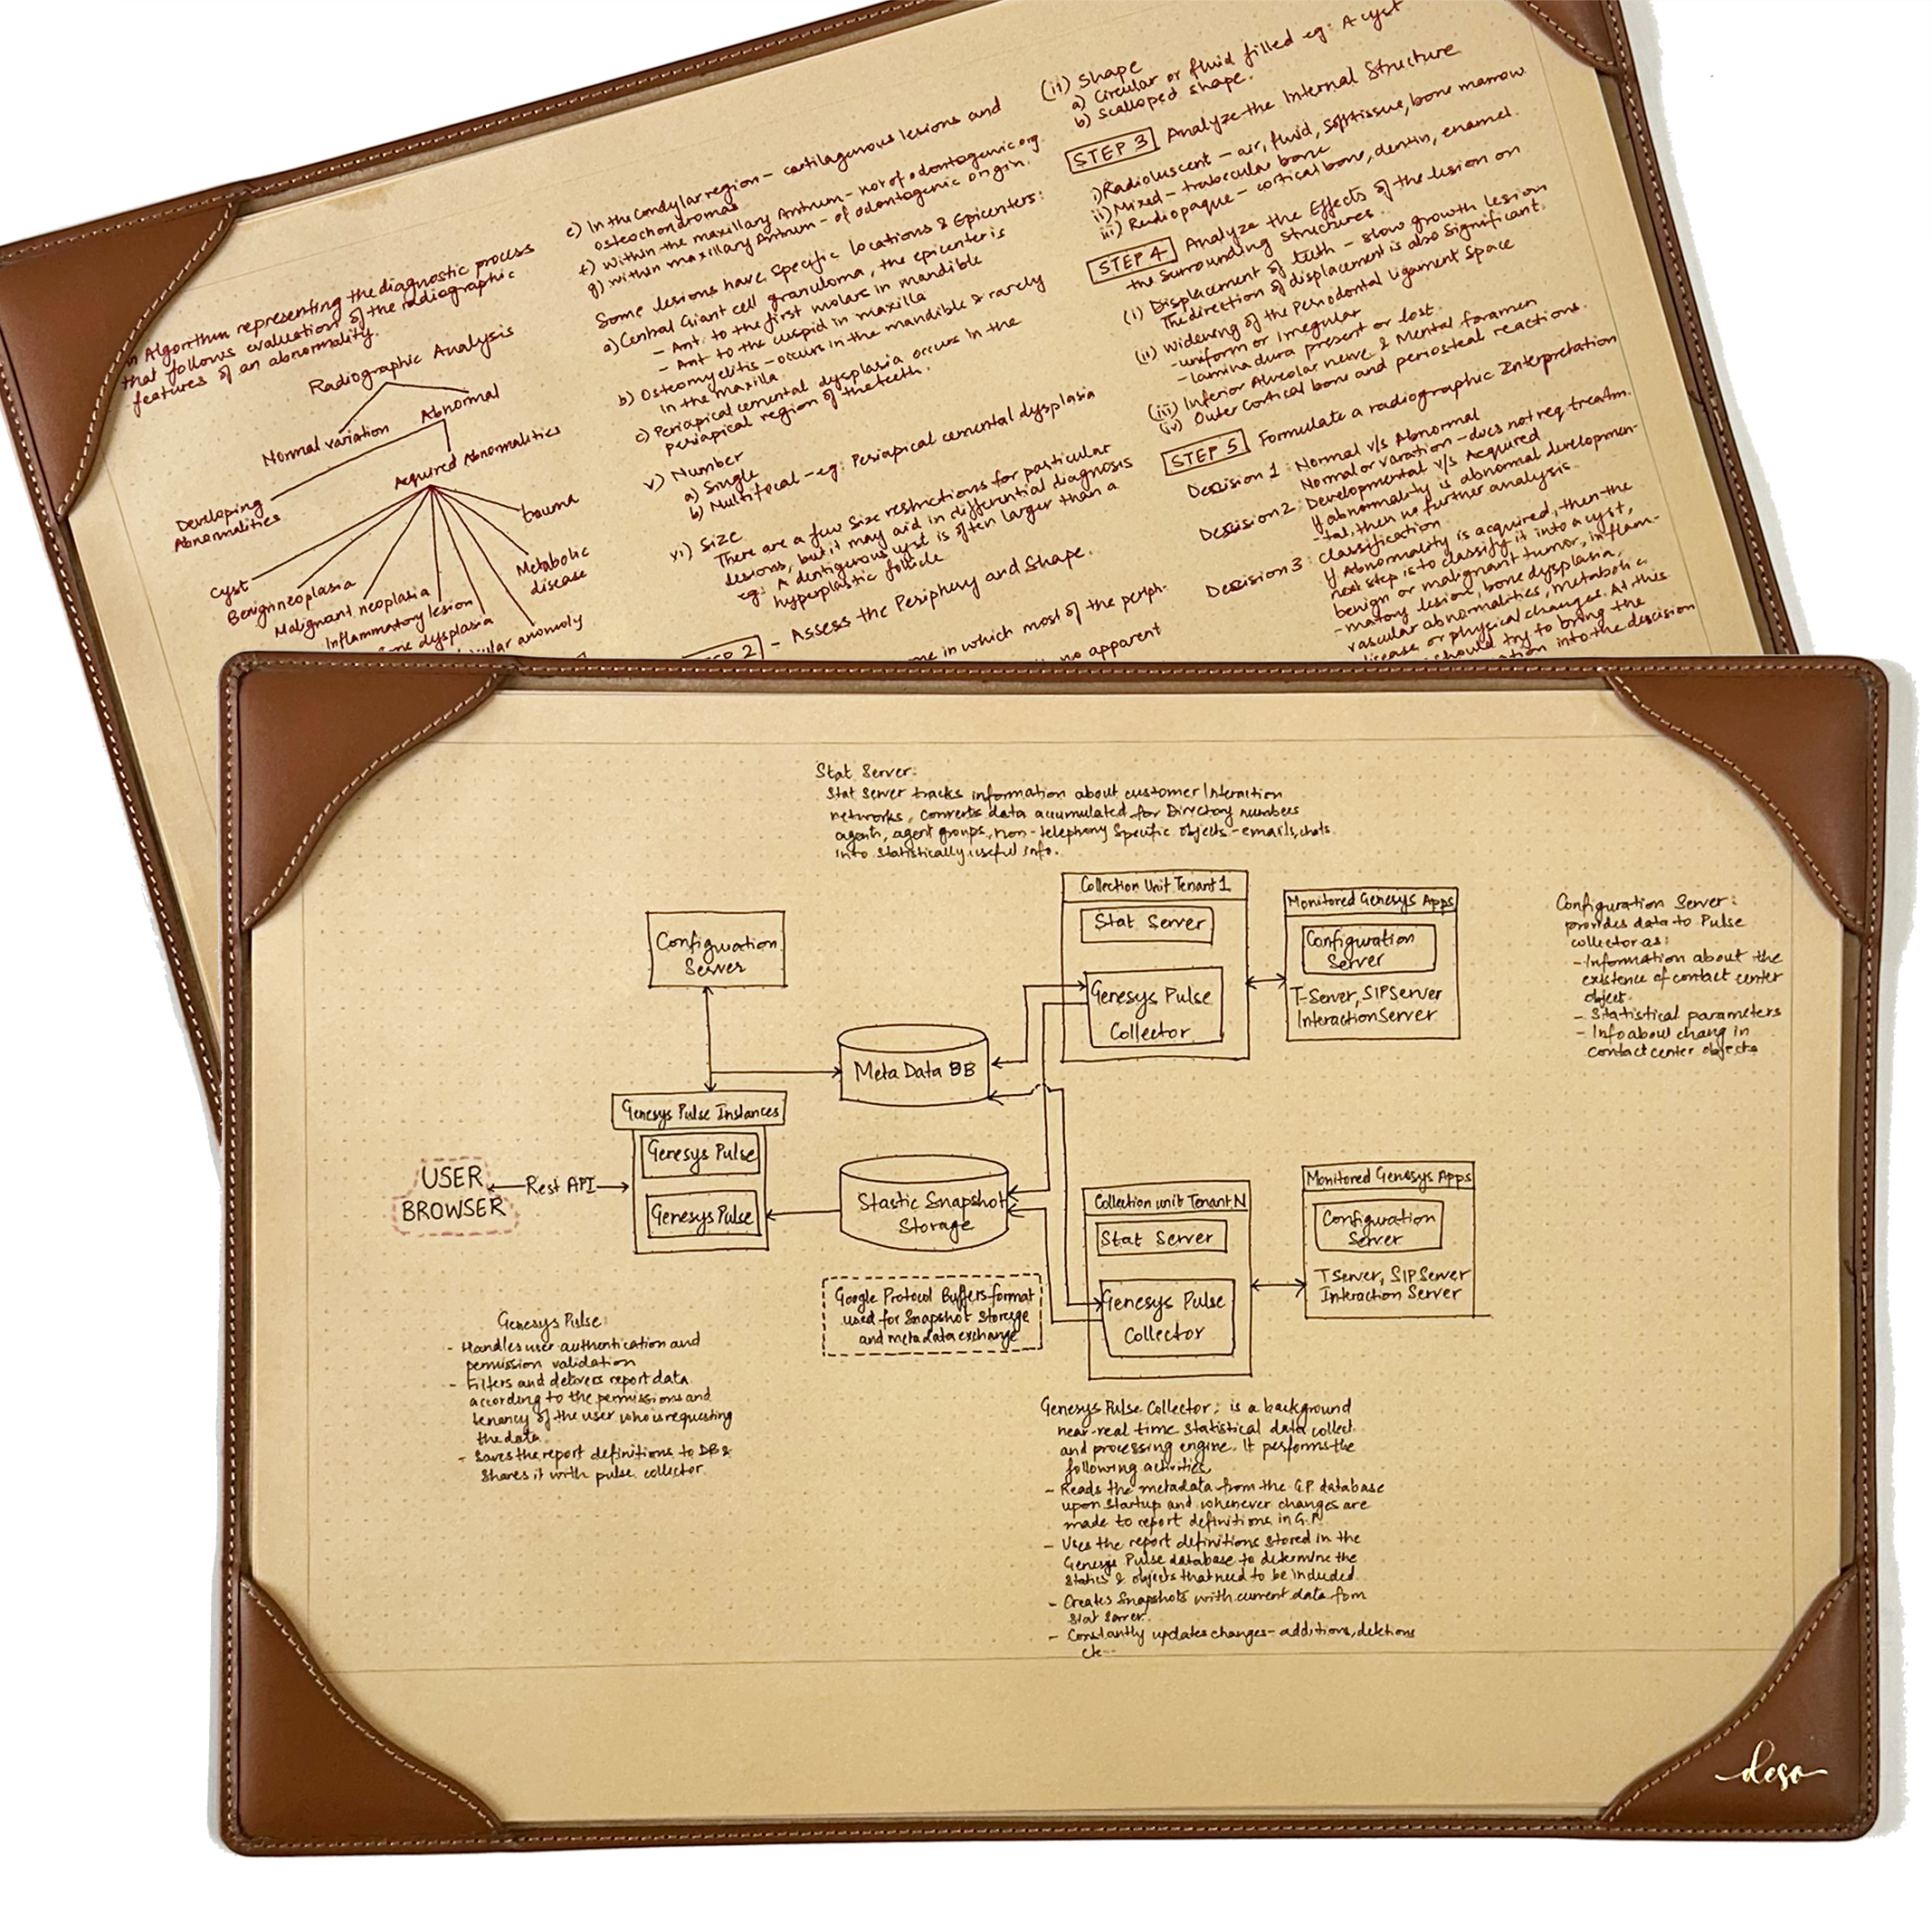 An Algorithm representing the diagnostic process
that follows evaluation of the radiographic
features of an abnormality.
Radiographic Analysis
Normal variation
Abnormal
Developing
Abnormalities
Acquired Abnormalities
Cyst
Benign neoplasia
Malignant neoplasia
Inflammatory lesion
one dysplasia
ular anomoly
Metabolic
disease
trauma
e) In the Condylar region - cartilagenous lesions and
osteochondromas
f) Within the maxillary Antrum - not of odontogenic org.
g) within maxillary Antrum - of odontogenic origin.
Some lesions have specific locations & Epicenters:
a) Central Giant cell granuloma, the epicenter is
- Ant. to the first molars in mandible
- Ant to the cuspid in maxilla
b) Osteomyelitis - occurs in the mandible & rarely
in the maxilla
c) Periapical cemental dysplasia occurs in the
periapical region of the teeth.
v) Number
a) Single
b) Multifocal - eg: Periapical cemental dysplasia
vi) Size
There are a few size restrictions for particular
lesions, but it may aid in differential diagnosis
eg: A dentigerous cyst is often larger than a
hyperplastic follicle
EP 2 - Assess the Periphery and Shape.
me in which most of the periph-
no apparent
(ii) Shape
a) Circular or fluid filled eg: A cyst
b) Scalloped shape.
STEP 3 Analyze the Internal Structure
i) Radioluscent - air, fluid, soft tissue, bone marrow
ii) Mixed - trabecular bone
iii) Radiopaque - cortical bone, dentin, enamel.
STEP 4 Analyze the Effects of the lesion on
the surrounding structures.
(i) Displacement of teeth - slow growth lesion
The direction of displacement is also significant.
(ii) Widening of the Periodontal Ligament Space
- uniform or Irregular
- lamina dura present or lost.
(iii) Inferior Alveolar nerve & Mental foramen
(iv) Outer Cortical bone and periosteal reactions.
STEP 5 Formulate a radiographic Interpretation
Descision 1: Normal v/s Abnormal
Normal or varation - does not req. treatm.
Descision 2: Developmental v/s Acquired
If abnormality is abnormal developmen-
-tal, then no further analysis.
Descision 3: classification
If Abnormality is acquired, then the
next step is to classify it into a cyst,
benign or malignant tumor, inflam-
-matory lesion, bone dysplasia,
vascular abnormalities, metabolic
disease or physical changes. At this
should try to bring the
ation into the descision
Stat Server:
Stat Server tracks information about customer Interaction
networks, converts data accumulated for Directory numbers
agents, agent groups, non-telephony Specific objects - emails, chats
into statistically useful info.
Configuration
Server
Collection Unit Tenant 1
Stat Server
Genesys Pulse
Collector
Monitored Genesys Apps
Configuration
Server
T-Server, SIP Server
Interaction Server
Configuration Server:
provides data to Pulse
collector as:
- Information about the
existence of contact center
object
- Statistical parameters
- Info about chang in
contact center objects
Meta Data DB
Genesys Pulse Instances
Genesys Pulse
Genesys Pulse
USER
BROWSER
Rest API
Stastic Snapshot
Storage
Collection unit Tenant N
Stat Server
Genesys Pulse
Collector
Monitored Genesys Apps
Configuration
Server
T Server, SIP Server
Interaction Server
Google Protocol Buffers format
used for Snapshot Storage
and metadata exchange
Genesys Pulse:
- Handles user authentication and
permission validation
- Filters and delivers report data
according to the permissions and
tenancy of the user who is requesting
the data
- Saves the report definitions to DB &
Shares it with pulse collector
Genesys Pulse Collector: is a background
near-real time statistical data collect
and processing engine. It performs the
following activities
- Reads the metadata from the G.P database
upon startup and whenever changes are
made to report definitions in G.P
- Uses the report definitions stored in the
Genesys Pulse database to determine the
statics & objects that need to be included
- Creates Snapshots with current data fom
Stat Server
- Constantly updates changes - additions, deletions
etc--
deso